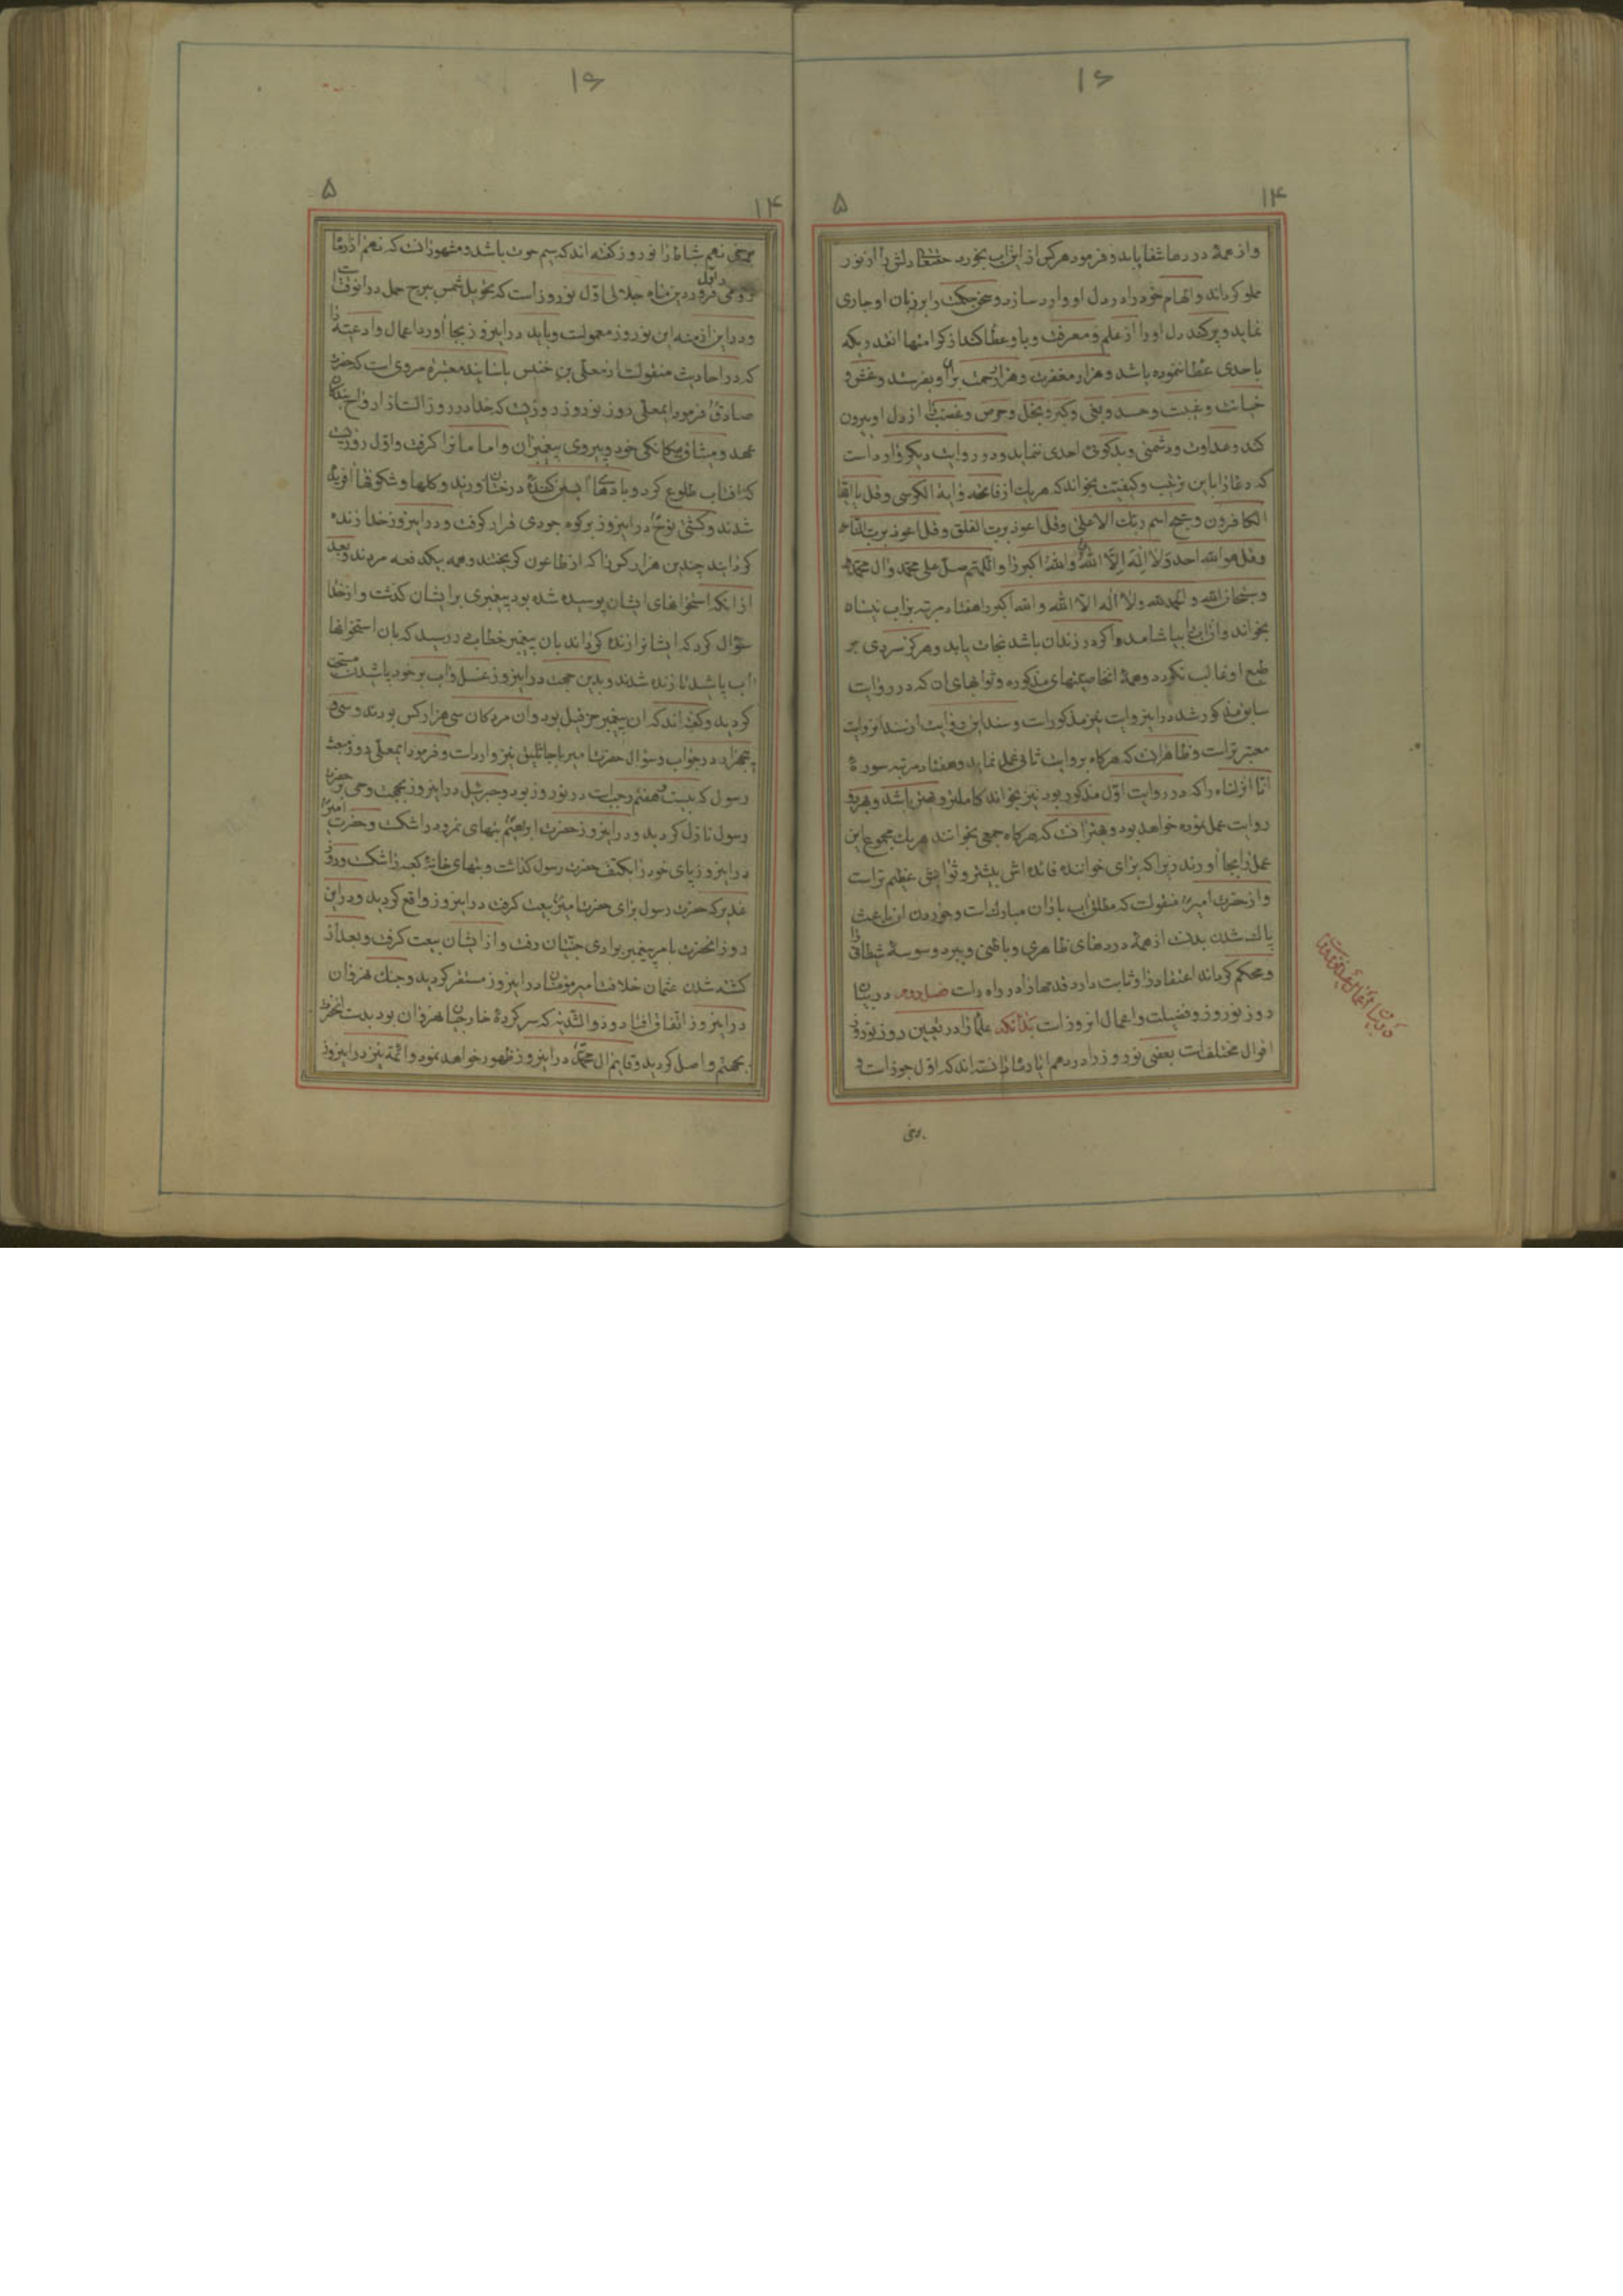 ۱۶
۱۴
۵
و از همه دردها شفا یابد و فرمود هر کس از این اب بخورد حقتعالی دلش را از نور
مملو کرداند و الهام خود را در دل او وارد سازد و حکمت را بر زبان او جاری
نماید و پر کند دل او را از علم و معرفت و باو عطا کند از کرامتها انقدر که
باحدی عطا ننموده باشد و هزار مغفرت و هزار رحمت برای او بفرستد و غش و
خیانت و غیبت و حسد و بغی و کبر و بخل و حرص و غضب را از دل او بیرون
کند و عداوت و دشمنی و بدکوئی احدی ننماید و در روایت دیکر وارد است
که دعا را باین ترتیب و کیفیت بخواند که هر یک از فاتحه و ایة الکرسی و قل یا ایها
الکافرون و سبح اسم ربک الاعلی و قل اعوذ برب الفلق و قل اعوذ برب الناس
و قل هو الله احد و لا اله الا الله و الله اکبر را و اللهم صل علی محمد و ال محمد
و سبحان الله و الحمد لله و لا اله الا الله و الله اکبر را هفتاد مرتبه بر اب نیسان
بخواند و از ان بیاشامد و اکر در زندان باشد نجات یابد و هرکز سردی بر
طبع او غالب نکردد و همه انخاصیتهای مذکوره و ثوابهای ان که در روایت
سابق مذکور شد در این روایت نیز مذکور است و سند این روایت از سند ان روایت
معتبرتر است و ظاهر انست که هر کاه بروایت ثانی عمل نماید و هفتاد مرتبه سوره
انا انزلناه را که در روایت اول مذکور بود نیز بخواند کاملتر و بهتر باشد و بهر دو
روایت عمل نموده خواهد بود و بهتر انست که هر کاه جمعی بخوانند هر یک مجموع این
عمل را بجا اورند زیرا که برای خواننده فائده اش بیشتر و ثوابش عظیم تر است
و از حضرت امیر منقولست که مطلق اب باران مبارک است و خوردن ان باعث
پاک شدن بدن از همه دردهای ظاهری و باطنی و ببرد وسوسه شیطان را
و محکم کرداند اعتقاد را و ثابت دارد قدمها را در راه راست فصل دوم در بیان
روز نوروز و فضیلت و اعمال انروز است بدانکه علما را در تعیین روز نوروز
اقوال مختلفست بعضی نوروز را در دهم ایار ماه دانسته اند که اول جوزاست و
برخی
۱۶
۱۴
۵
برخی نهم شباط را نوروز کفته اند که سیم حوت باشد و مشهور انست که نهم اذر ماه
رومی و اول فروردین ماه جلالی اول نوروز است که تحویل شمس ببرج حمل در انوقت است
و در این ازمنه این نوروز معمولست و باید در این روز بجا اورد اعمال و ادعیه را
که در احادیث منقولست از معلی بن خنیس باسانید معتبره مروی است که حضرت
صادق فرمود ایمعلی روز نوروز روزیست که خدا در روز الست از ارواح بندکان
عهد و میثاق بیکانکی خود و پیروی پیغمبران و امامان را کرفت و اول روزیست
که افتاب طلوع کرد و بادهای ابستن کننده درختان وزیدند و کلها و شکوفها افریده
شدند و کشتی نوح در این روز بر کوه جودی قرار کرفت و در این روز خدا زنده
کردانید چندین هزار کس را که از طاعون کریختند و همه بیکدفعه مردند و بعد
از انکه استخوانهای ایشان پوسیده شده بود پیغمبری بر ایشان کذشت و از خدا
سؤال کرد که ایشانرا زنده کرداند بان پیغمبر خطاب در رسید که بان استخوانها
اب بپاشد تا زنده شدند و بدین جهت در این روز غسل و اب بر خود پاشیدن مستحب
کردید و کفته اند که ان پیغمبر حزقیل بود و ان مردکان سی هزار کس بودند و سی و
پنجهزار در جواب و سؤال حضرت امیر با جاثلیق نیز وارد است و فرمود ایمعلی روز مبعث
رسول که بیست و هفتم رجب است در نوروز بود و جبرئیل در این روز بجهت وحی بر حضرت
رسول نازل کردید و در این روز حضرت ابراهیم بتهای نمرود را شکست و حضرت امیر
در این روز پای خود را بکتف حضرت رسول کذاشت و بتهای خانه کعبه را شکست و روز
غدیر که حضرت رسول برای حضرت امیر بیعت کرفت در این روز واقع کردید و در این
روز انحضرت بامر پیغمبر بوادی جنیان رفت و از ایشان بیعت کرفت و بعد از
کشته شدن عثمان خلافت امیر مؤمنان در این روز مستقر کردید و جنک نهروان
در این روز اتفاق افتاد و ذو الثدیه که سرکرده خارجیان نهروان بود بدست انحضرت
بجهنم واصل کردید و قایم ال محمد در این روز ظهور خواهد نمود و ائمه نیز در این روز